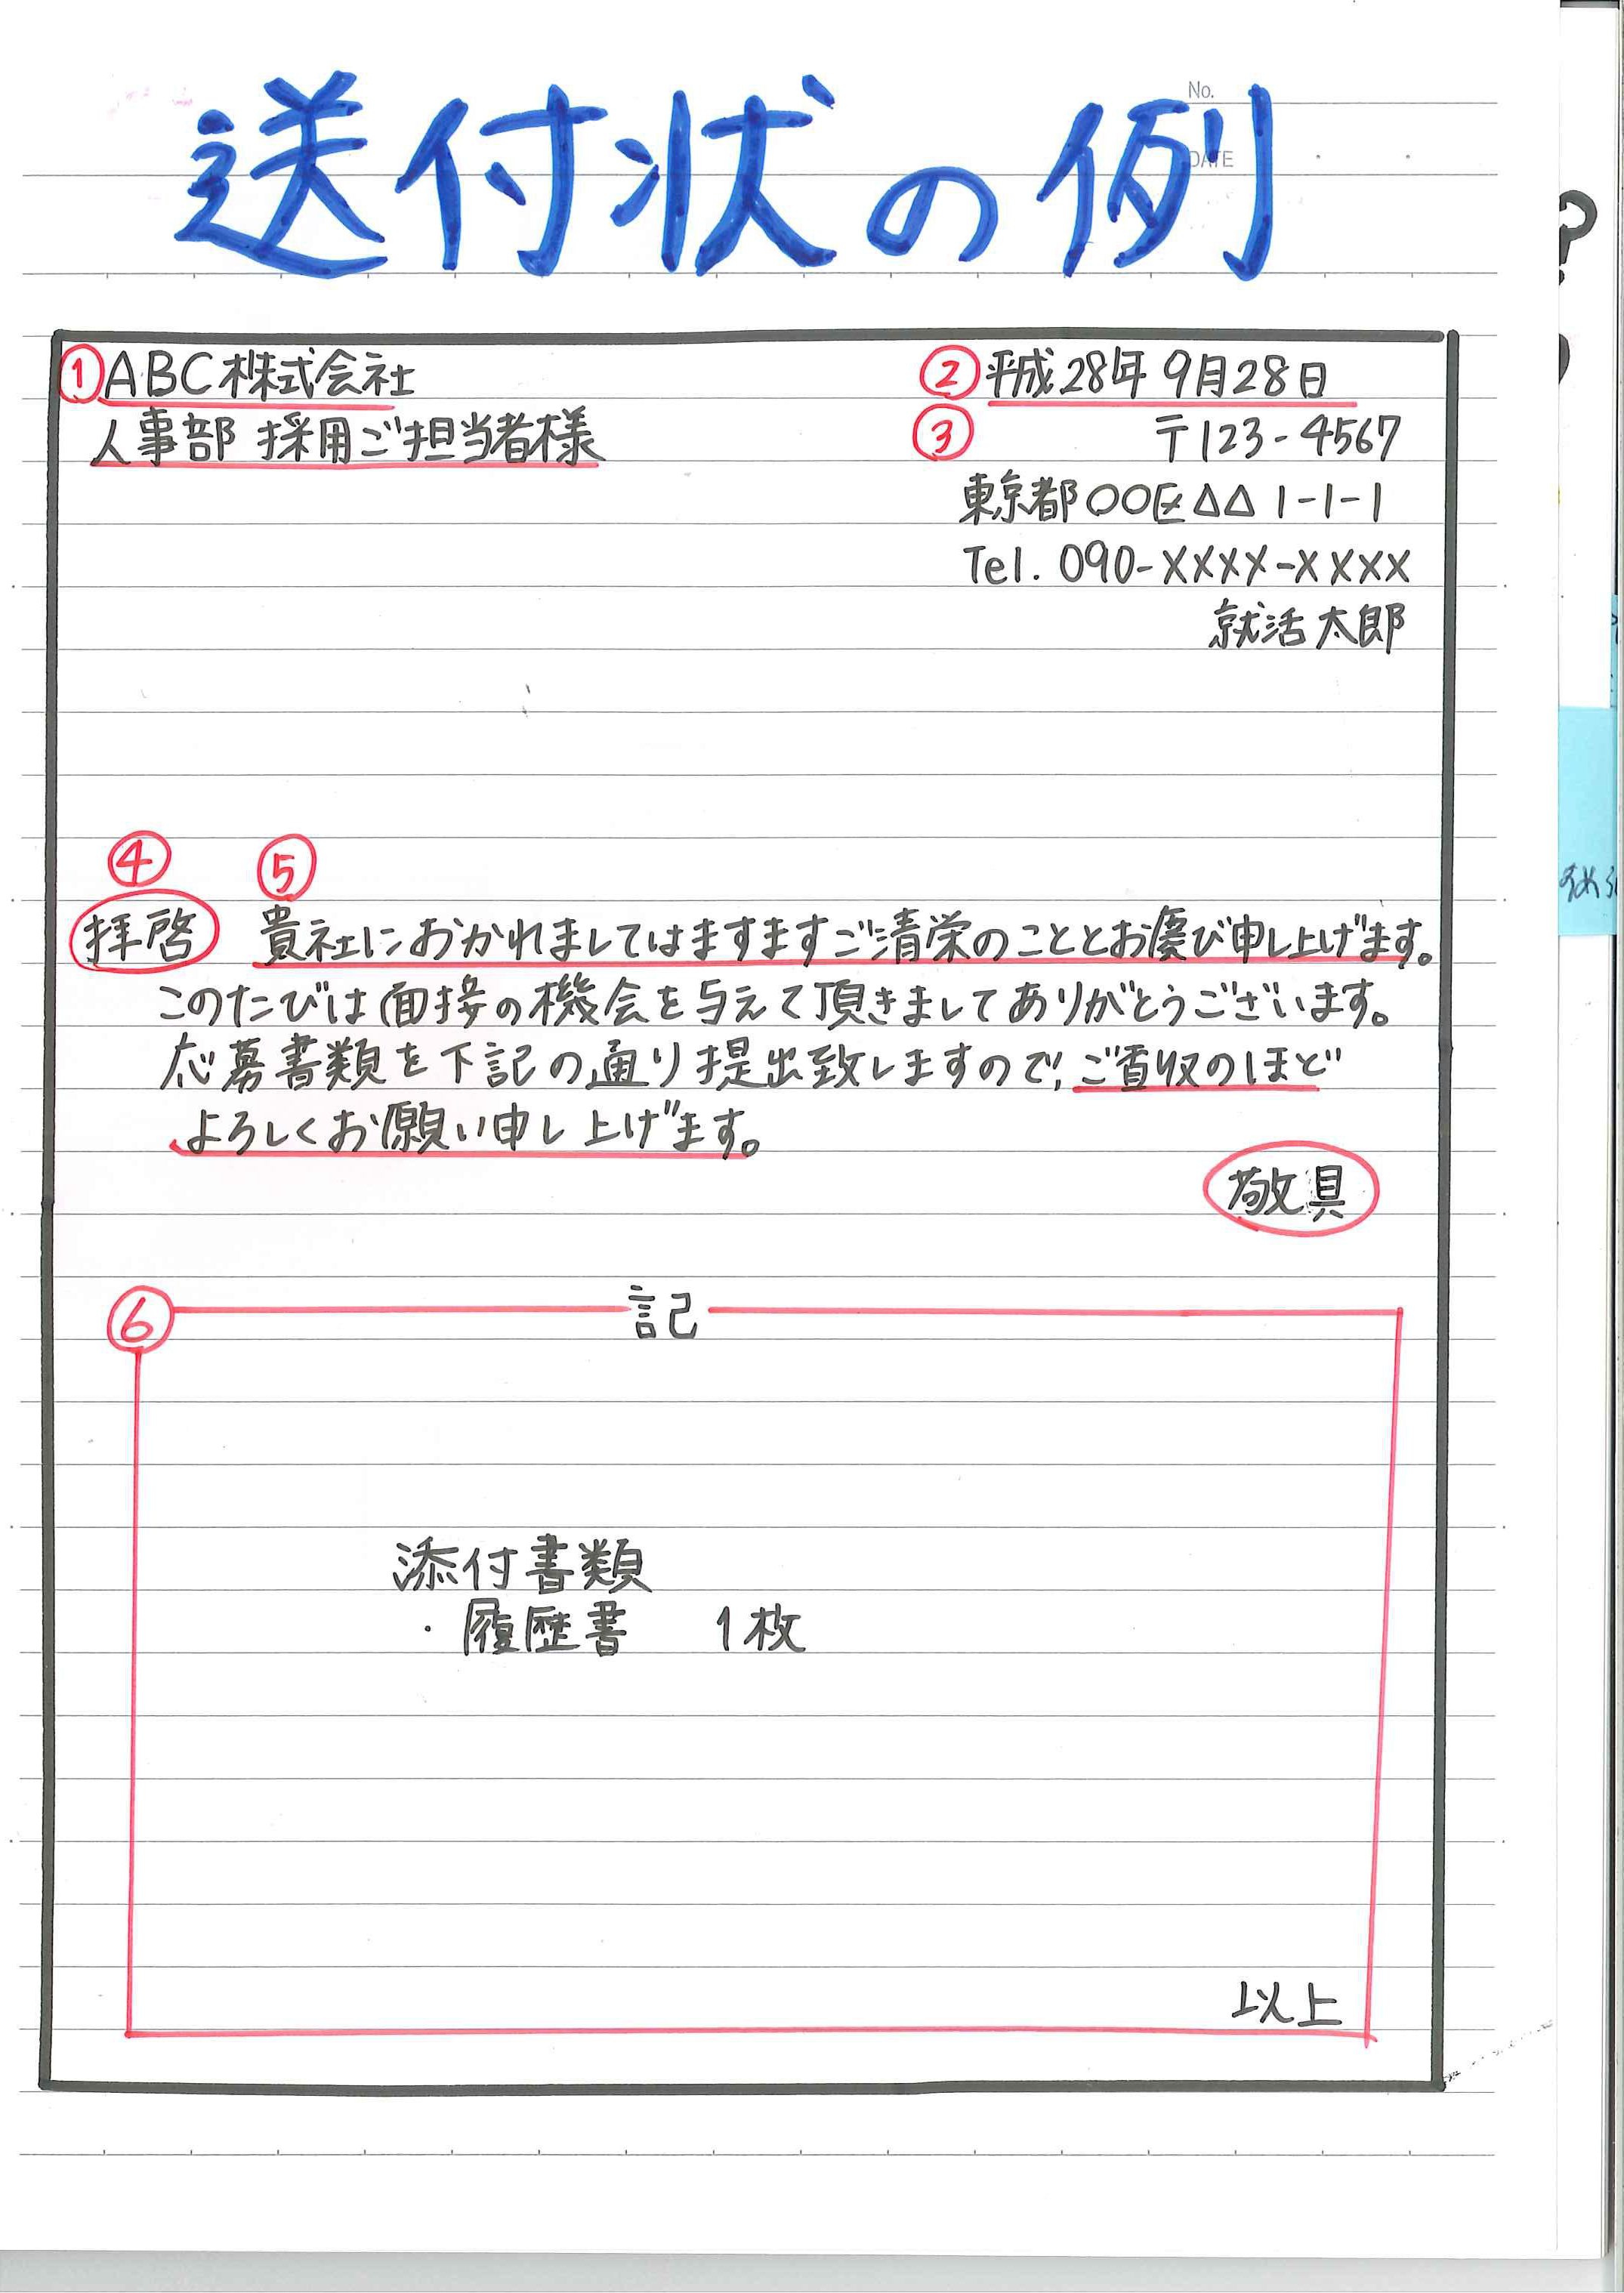 No.
DATE
送付状の例
①ABC株式会社
②平成28年9月28日
人事部 採用ご担当者様
③ 〒123-4567
東京都〇〇区△△ 1-1-1
Tel. 090-XXXX-XXXX
就活太郎
④ ⑤
拝啓 貴社におかれましてはますますご清栄のこととお慶び申し上げます。
このたびは面接の機会を与えて頂きましてありがとうございます。
応募書類を下記の通り提出致しますので、ご査収のほど
よろしくお願い申し上げます。
敬具
⑥ 記
添付書類
・履歴書 1枚
以上